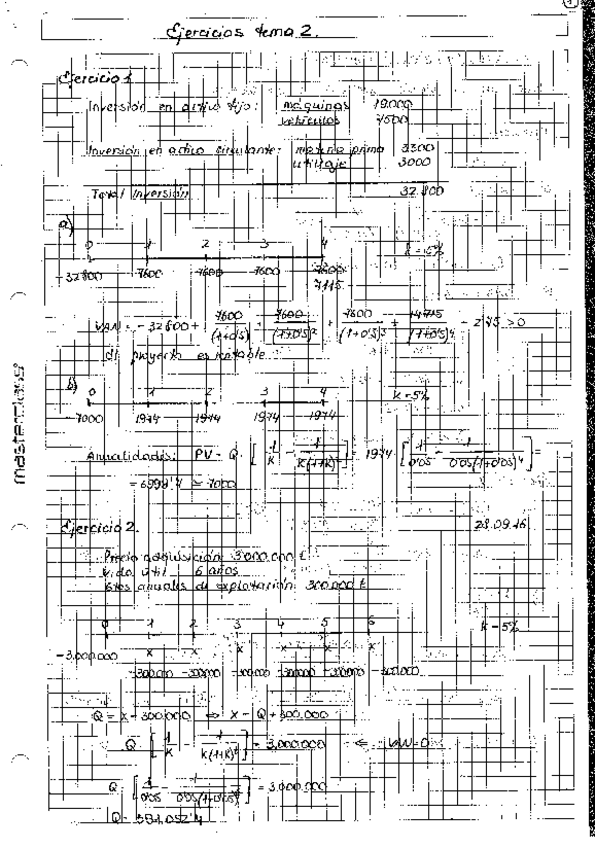 1
Ejercicios tema 2.
Ejercicio 1
Inversión en activo fijo: máquinas 19.000
vehículos 7500
Inversión en activo circulante: materia prima 3300
utillaje 3000
Total inversión 32.800
a)
0 1 2 3 4
K=5%
-32800 7600 7600 7600 7600
7115
VAN = -32800 + 7600/(1+0'05) + 7600/(1+0'05)² + 7600/(1+0'05)³ + 14715/(1+0'05)⁴ = >0
el proyecto es rentable
b)
0 1 2 3 4
K=5%
-7000 1974 1974 1974 1974
Anualidades: PV = Q · [1/K - 1/K(1+K)⁴] = 1974 [1/0'05 - 1/0'05(1+0'05)⁴] =
= 6999'7 ≃ 7000
Ejercicio 2.
28.09.16
Precio adquisición 3.000.000 €
Vida útil 6 años
Ctes anuales de explotación 300.000 €
0 1 2 3 4 5 6
K=5%
-3.000.000 x x x x x x
-300.000 -300.000 -300.000 -300.000 -300.000 -300.000
Q = x - 300.000 ⇔ x = Q + 300.000
Q [1/K - 1/K(1+K)⁶] = 3.000.000 ⇐ VAN=0
Q [1/0'05 - 1/0'05(1+0'05)⁶] = 3.000.000
Q = 591.052'4
masterclass